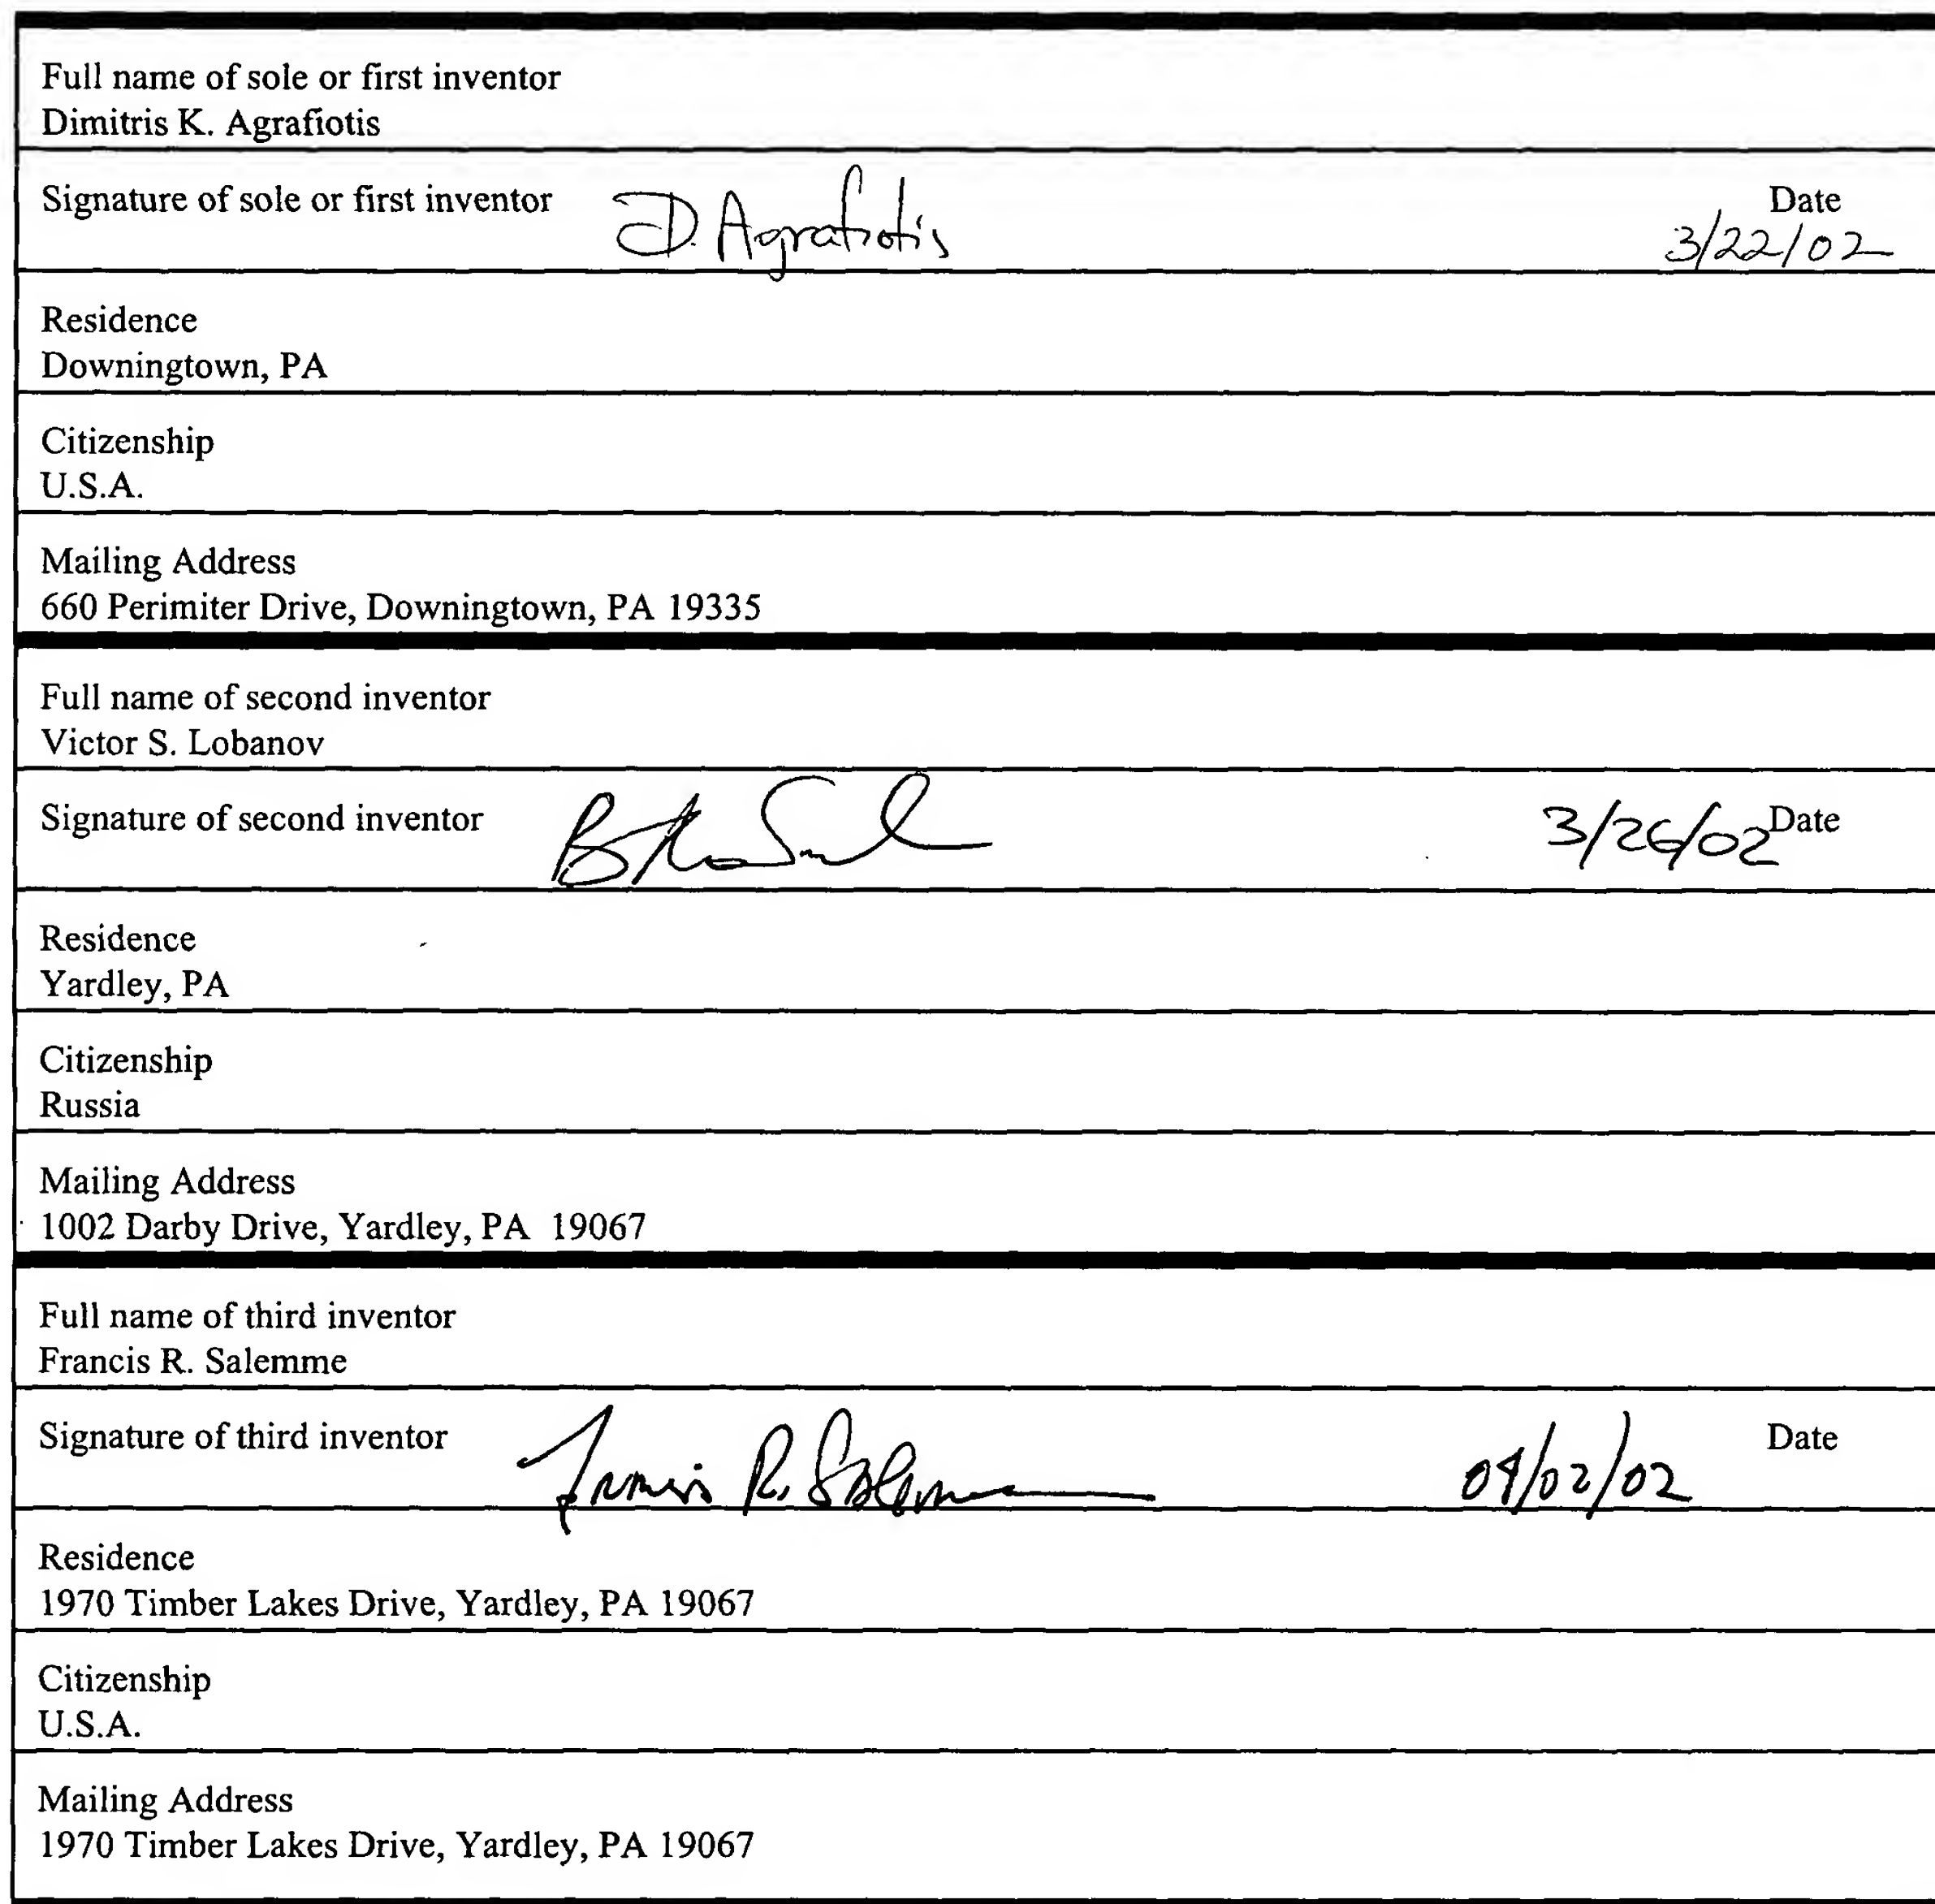 Full name of sole or first inventor
Dimitris K. Agrafiotis
Signature of sole or first inventor D. Agrafiotis Date
3/22/02
Residence
Downingtown, PA
Citizenship
U.S.A.
Mailing Address
660 Perimiter Drive, Downingtown, PA 19335
Full name of second inventor
Victor S. Lobanov
Signature of second inventor 3/26/02 Date
Residence
Yardley, PA
Citizenship
Russia
Mailing Address
1002 Darby Drive, Yardley, PA 19067
Full name of third inventor
Francis R. Salemme
Signature of third inventor Francis R. Salemme 04/02/02 Date
Residence
1970 Timber Lakes Drive, Yardley, PA 19067
Citizenship
U.S.A.
Mailing Address
1970 Timber Lakes Drive, Yardley, PA 19067